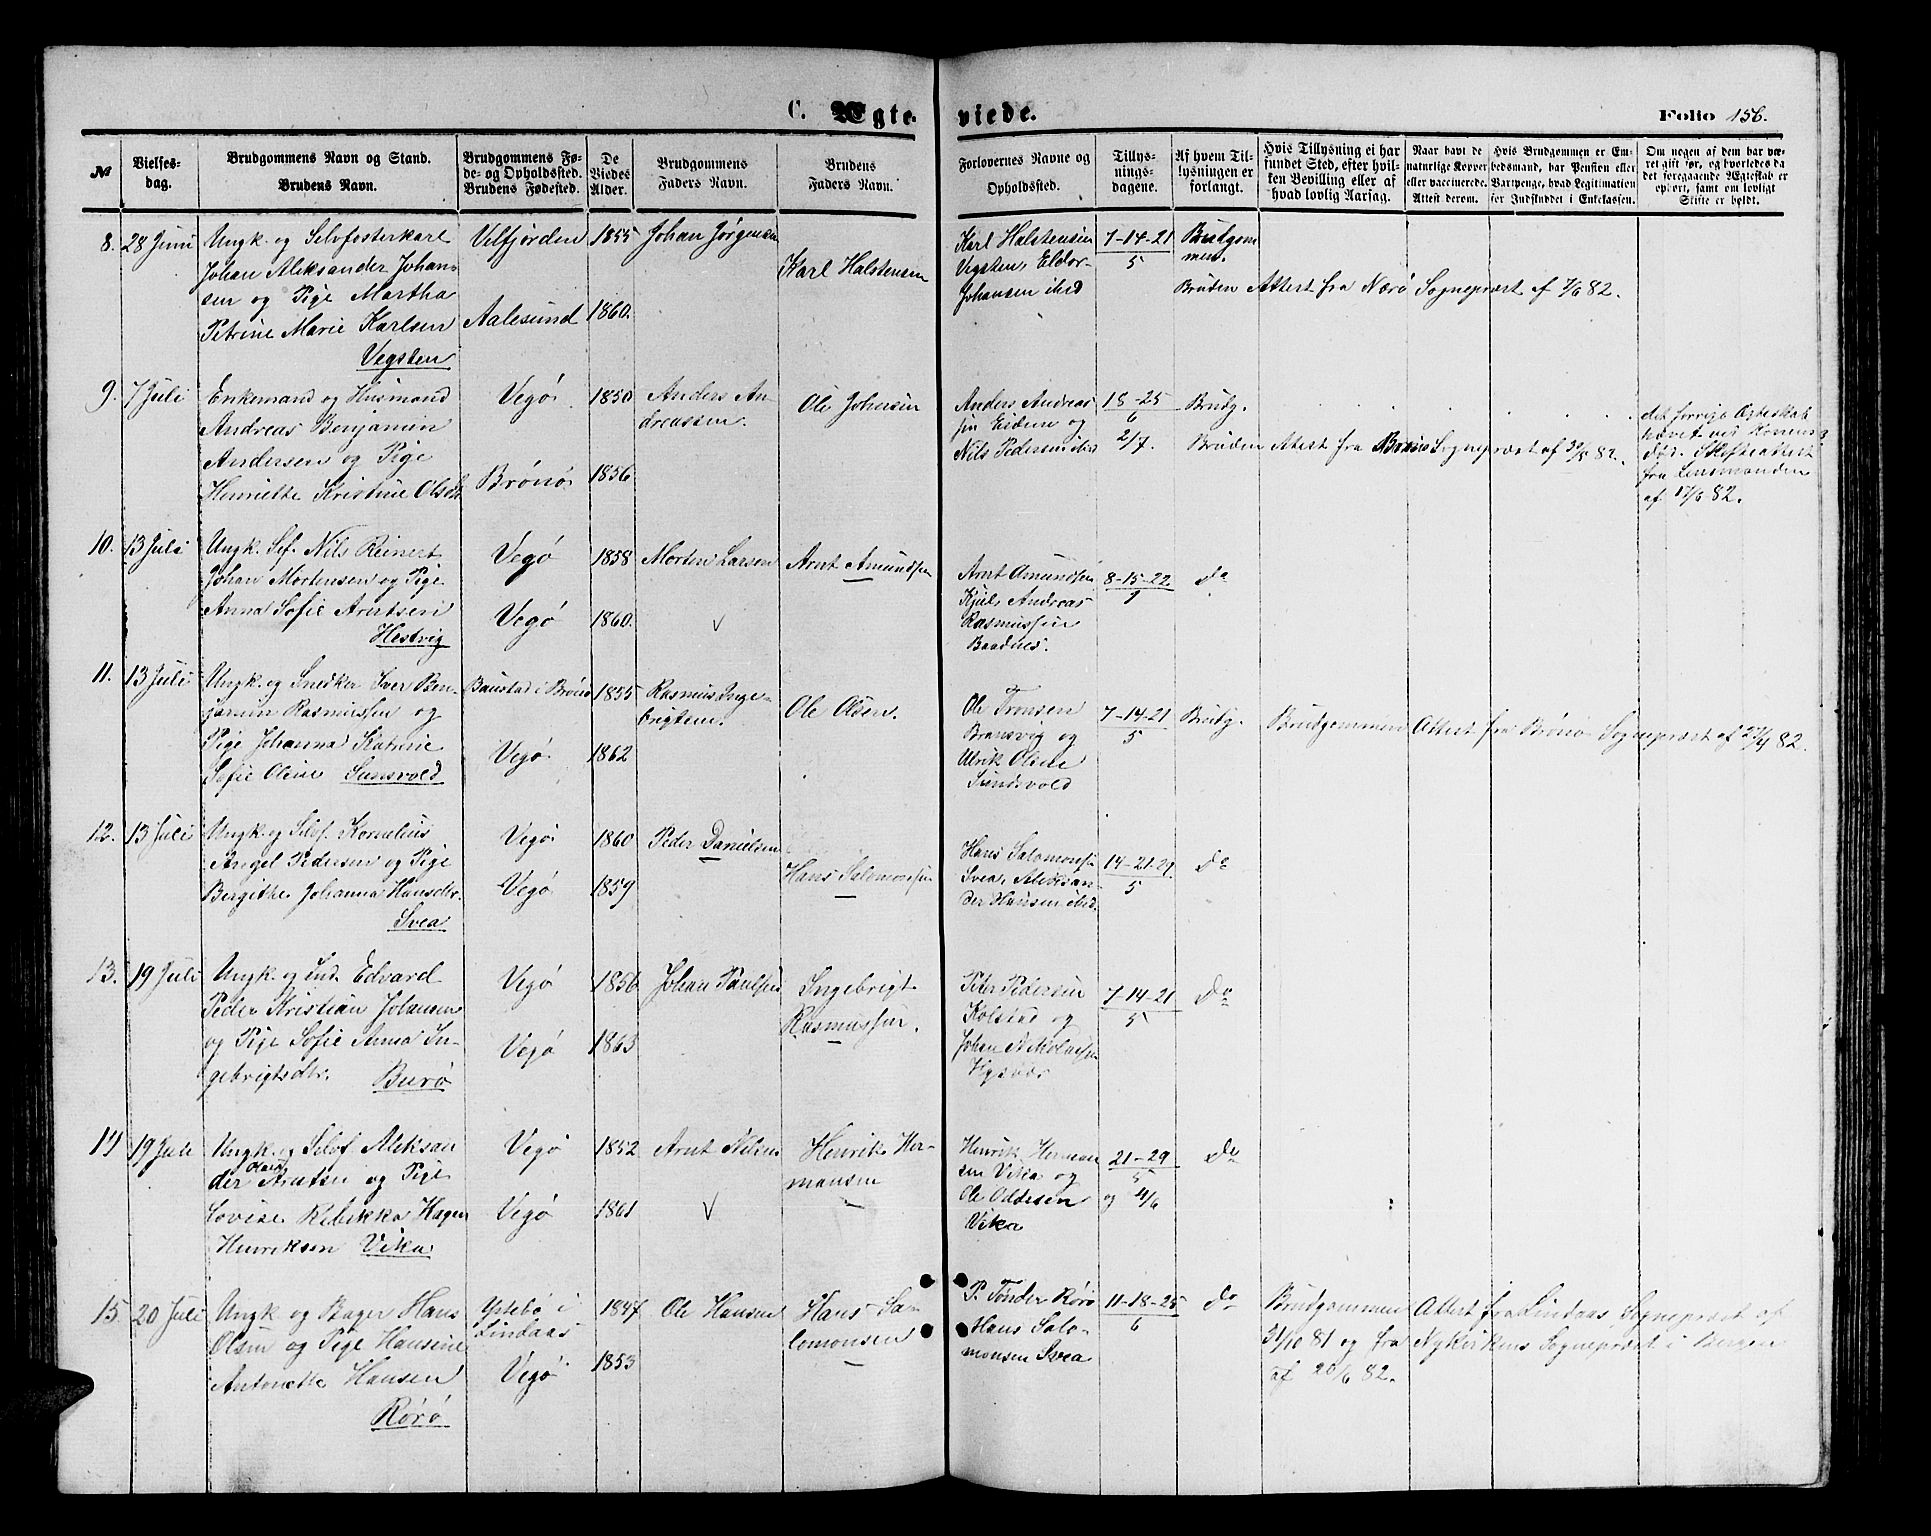 C. Ægte
viede.
Folio 156.
№
Vielses-
dag.
Brudgommens Navn og Stand.
Brudens Navn.
Brudgommens Fø-
de- og Opholdssted.
Brudens Fødested.
De
Viedes
Alder.
Brudgommens
Faders Navn.
Brudens
Faders Navn.
Forlovernes Navne og
Opholdssted.
Tillys-
nings-
dagene.
Af hvem Til-
lysningen er
forlangt.
Hvis Tillysning ei har
fundet Sted, efter hvil-
ken Bevilling eller af
hvad lovlig Aarsag.
Naar havt de
naturlige Kopper
eller vaccinerede.
Attest derom.
Hvis Brudgommen er Em-
bedsmand, har Pension eller
Vartpenge, hvad Legitimation
for Indskuddet i Enkekassen.
Om nogen af dem har væ-
ret gift før, og hvorledes da
det foregaaende Ægteskab er
ophørt, samt om lovligt
Skifte er holdt.
8. 28 Juni
Ungk. og Selvfosterkarl
Johan Aleksander Johan-
sen og Pige Martha
Petrine Marie Karlsen
Vegsten
Velfjorden
Aalesund
1855
1860.
Johan Jørgensen
Karl Halstensen
Karl Halstensen
Vegsten, Eldor-
Johansen ibid
7-14-21
5
Brudgom
men.
Bruden Attest fra Nærø Sognepræst af 7/6 82.
9. 7 Juli
Enkemand og Husmand
Andreas Benjamin
Andersen og Pige
Henriette Kristine Olsdt
Vegø
Brønø
1850
1856
Anders An-
dreassen.
Ole Johnsen
Anders Andreas
sen Eidem og
Nils Pedersen ibid
18-25
6
2/7.
Brudg.
Bruden Attest fra Brønø Sognepræst af 30/5 82.
det forrige Ægteskab
hævet ved Konens
død. Skifteattest
fra Lensmanden
af 17/6 82.
10. 13 Juli
Ungk. Sef. Nils Reinert
Johan Mortensen og Pige
Anna Sofie Arntsen
Hestvig
Vegø
Vegø
1858
1860.
Morten Larsen
Arnt Amundsen
Arnt Amundsen
Kjul, Andreas
Rasmussen
Baadnes.
8-15-22
1
do
11. 13 Juli
Ungk. og Snedker Iver Ben-
jamin Rasmussen og
Pige Johanna Katrine
Sofie Oline Sunsvold
Baustad i Brønø
Vegø
1855
1862
Rasmus Inge-
brigtsen.
Ole Olsen.
Ole Tronsen
Bransvig og
Ulrik Olsen
Sundsvold
7-14-21
5
Brudg.
Brudgommen Attest fra Brønø Sognepræst af 27/4 82.
12. 13 Juli
Ungk. og Selvf. Kornelius
Angel Pedersen og Pige
Bergithe Johanna Hansdtr.
Svea
Vegø
Vegø
1860
1859
Peder Danielsen
Hans Salomonsen
Hans Salomonsen
Svea, Aleksan-
der Hansen ibid.
14-21-29
5
Do
13. 19 Juli
Ungk. og Ind. Edvard
Peder Kristian Johansen
og Pige Sofie Anna In-
gebrigtsdtr. Burø
Vegø
Vegø
1856
1863
Johan Paulsen
Ingebrigt
Rasmussen.
Peter Pedersen
Kolstad og
Johan Nikolaisen
7-14-21
5
Do
14 19 Juli
Ungk. og Selvf Aleksan
der Arntsen og Pige
Lovise Rebekka Hagen
Henriksen Vika
Vegø
Vegø
1852
1861
Arnt Nilsen
Henrik Her-
mansen
Henrik Herman
sen Vika og
Ole Oddesen
Vika
21-29
5
og 4/6
Do
15 20 Juli
Ungk og Bager Hans
Olsen og Pige Hansine
Antonette Hansen
Rørø
Ystebø i
Lindaas
Vegø
1847
1853
Ole Hansen
Hans Sa-
lomonsen
P. Tønder Rørø
Hans Salo-
monsen Svea
11-18-25
6
Do
Brudgommen Attest fra Lindaas Sognepræst af
31/10 81 og fra Nykirkens Sognepræst i Bergen
af 20/6 82.